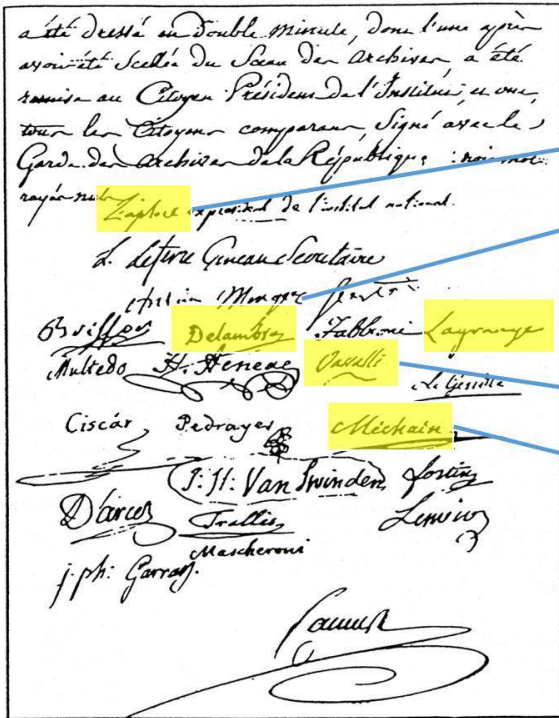 a été dressé en double minute, dont l'une après
avoir été Scellée du Sceau des archives, a été
remise au Citoyen Président de l'Institut, et ont,
tous les Citoyens comparans, Signé avec le
Garde des archives de la République : trois mots
rayés nuls
Laplace expresident de l'institut national.
L. lefevre Gineau Secretaire
Mongez
Brisson Delambre Fabbroni Lagrange
Multedo H. Aeneae Vassalli
Ciscár Pedrayes Méchain
J: H: Van Swinden
D'arcet Tralles Lenoir
Mascheroni
j. ph: Garran.
Camus